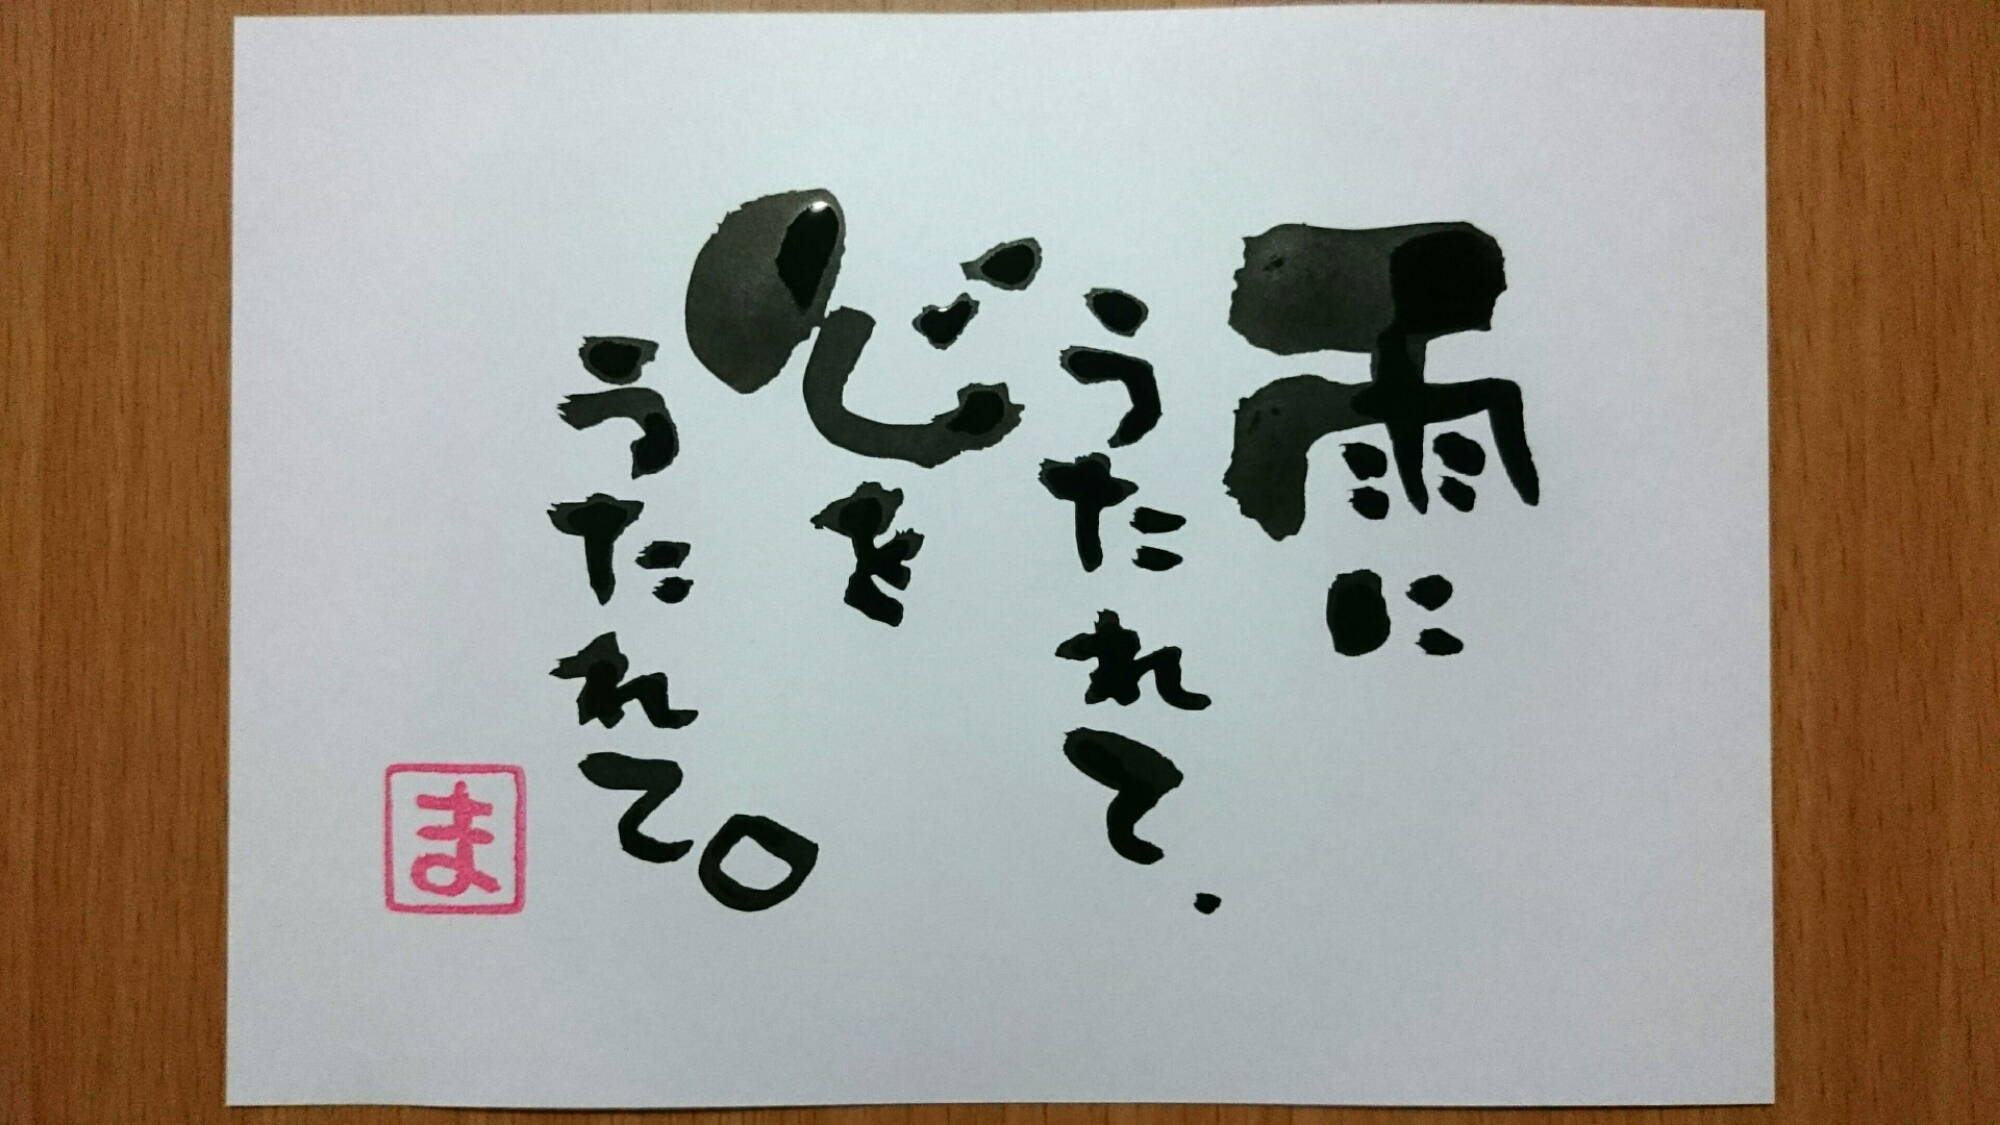 雨に
うたれて.
心を
うたれて。
ま